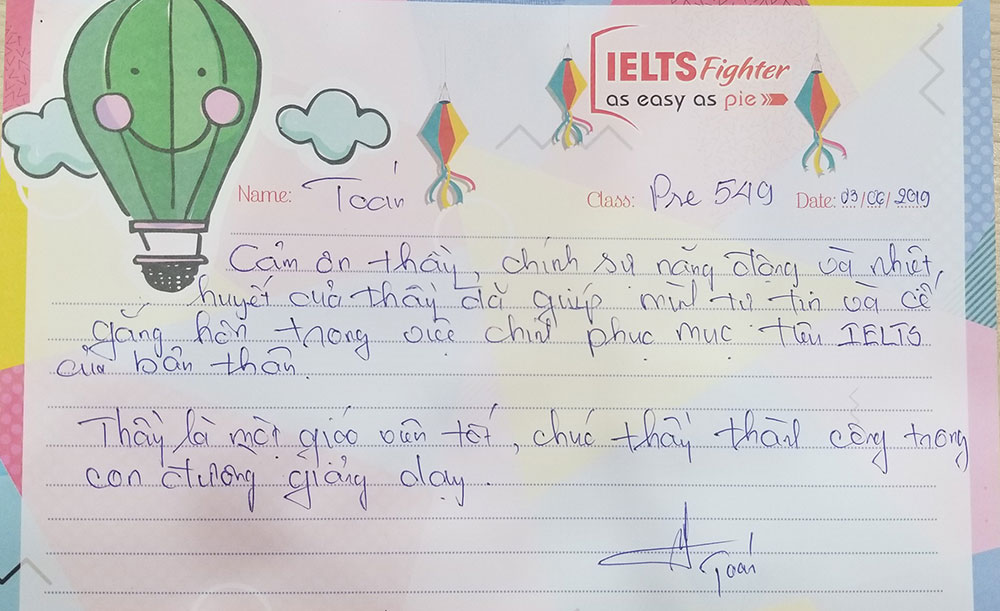 IELTS Fighter
as easy as pie
Name: Toán Class: Pre 549 Date: 03/06/2019
Cảm ơn thầy, chính sự năng động và nhiệt
huyết của thầy đã giúp mình tự tin và cố
gắng hơn trong việc chinh phục mục tiêu IELTS
của bản thân.
Thầy là một giáo viên tốt, chúc thầy thành công trong
con đường giảng dạy.
Toán